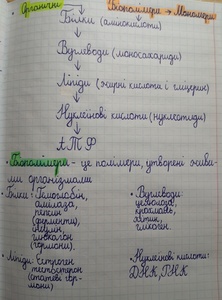 Органічні Біополімери → Мономери
Білки (амінокислоти)
Вуглеводи (моносахариди)
Ліпіди (жирні кислоти і гліцерин)
Нуклеїнові кислоти (нуклеотиди)
АТФ
• Біополімери - це полімери, утворені живи-
ми організмами
Білки: Гемоглобін,
амілаза,
пепсин
(ферменти),
інсулін,
глюкагон
(гормони).
• Вуглеводи:
целюлоза,
крохмаль,
хітин,
глікоген.
Ліпіди: Естроген
тестостерон
(статеві гор-
мони)
• Нуклеїнові кислоти:
ДНК, РНК